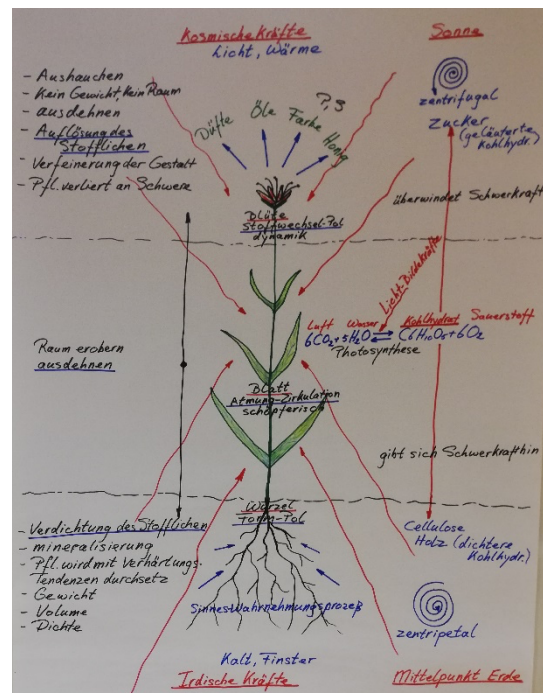 Kosmische Kräfte
Licht, Wärme
Sonne
- Aushauchen
- Kein Gewicht, Kein Raum
- ausdehnen
- Auflösung des
Stofflichen
- Verfeinerung der Gestalt
- Pfl. verliert an Schwere
Düfte
Öle
Farbe
Honig
P, S
zentrifugal
Zucker
(geläuterte
Kohlhydr.)
überwindet Schwerkraft
Blüte
Stoffwechsel-Pol
dynamik
Licht-Bildekräfte
Luft Wasser Kohlhydrat Sauerstoff
6CO2+5H2O ⇌ C6H10O5+6O2
Photosynthese
Raum erobern
ausdehnen
Blatt
Atmung-Zirkulation
schöpferisch
gibt sich Schwerkraft hin
Wurzel
Form-Pol
- Verdichtung des Stofflichen
- mineralisierung
- Pfl. wird mit Verhärtungs.
Tendenzen durchsetz
- Gewicht
- Volume
- Dichte
Cellulose
Holz (dichtere
Kohlhydr.)
SinnesWahrnehmungsprozeß
zentripetal
Kalt, Finster
Irdische Kräfte
Mittelpunkt Erde